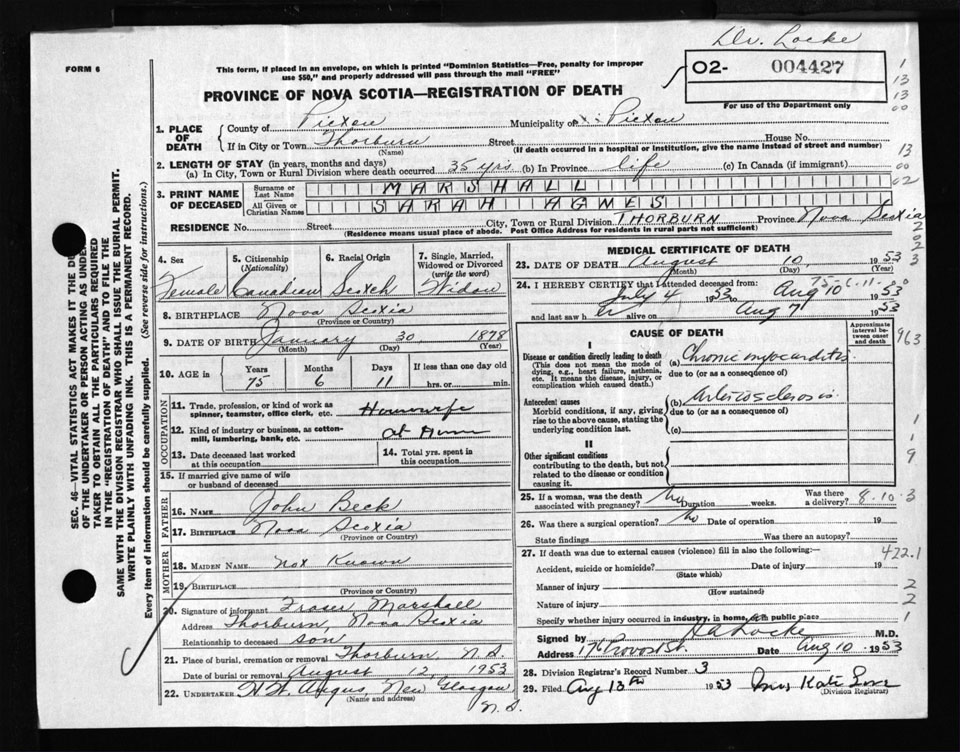 Dr. Locke
FORM 6
This form, if placed in an envelope, on which is printed "Dominion Statistics—Free, penalty for improper
use $50," and properly addressed will pass through the mail "FREE"
O2- 004427
For use of the Department only
PROVINCE OF NOVA SCOTIA—REGISTRATION OF DEATH
1. PLACE OF DEATH
County of Pictou Municipality of Pictou
If in City or Town Thorburn Street House No.
(Name) (If death occurred in a hospital or institution, give the name instead of street and number)
2. LENGTH OF STAY (in years, months and days)
(a) In City, Town or Rural Division where death occurred 35 yrs. (b) In Province life (c) In Canada (if immigrant)
3. PRINT NAME OF DECEASED
Surname or Last Name MARSHALL
All Given or Christian Names SARAH AGNES
RESIDENCE No. Street City, Town or Rural Division THORBURN Province Nova Scotia
(Residence means usual place of abode. Post Office Address for residents in rural parts not sufficient)
4. Sex Female
5. Citizenship (Nationality) Canadian
6. Racial Origin Scotch
7. Single, Married, Widowed or Divorced (write the word) Widow
8. BIRTHPLACE Nova Scotia
(Province or Country)
9. DATE OF BIRTH January 30 1878
(Month) (Day) (Year)
10. AGE in Years 75 Months 6 Days 11 If less than one day old hrs. or min.
OCCUPATION
11. Trade, profession, or kind of work as spinner, teamster, office clerk, etc. Housewife
12. Kind of industry or business, as cotton-mill, lumbering, bank, etc. at Home
13. Date deceased last worked at this occupation
14. Total yrs. spent in this occupation
15. If married give name of wife or husband of deceased
FATHER
16. NAME John Beck
17. BIRTHPLACE Nova Scotia
(Province or Country)
MOTHER
18. MAIDEN NAME Not Known
19. BIRTHPLACE
(Province or Country)
20. Signature of informant Fraser Marshall
Address Thorburn, Nova Scotia
Relationship to deceased son
21. Place of burial, cremation or removal Thorburn, N.S.
Date of burial or removal August 12, 1953
22. UNDERTAKER H.W. Angus, New Glasgow
(Name and address) N.S.
MEDICAL CERTIFICATE OF DEATH
23. DATE OF DEATH August 10, 1953
(Month) (Day) (Year)
75-6-11
24. I HEREBY CERTIFY that I attended deceased from
July 4 1953 to Aug 10 1953
and last saw her alive on Aug 7 1953
CAUSE OF DEATH
Approximate interval between onset and death
I
Disease or condition directly leading to death
(This does not mean the mode of dying, e.g., heart failure, asthenia, etc. It means the disease, injury, or complication which caused death.)
(a) Chronic myocarditis
due to (or as a consequence of)
Antecedent causes
Morbid conditions, if any, giving rise to the above cause, stating the underlying condition last.
(b) Arteriosclerosis
due to (or as a consequence of)
(c)
II
Other significant conditions
contributing to the death, but not related to the disease or condition causing it.
25. If a woman, was the death associated with pregnancy? No Duration weeks. Was there a delivery? 8-10-3
26. Was there a surgical operation? No Date of operation 19
State findings Was there an autopsy?
27. If death was due to external causes (violence) fill in also the following:— 422.1
Accident, suicide or homicide? Date of injury 19
(State which)
Manner of injury
(How sustained)
Nature of injury
Specify whether injury occurred in industry, in home, or in public place
Signed by Locke M.D.
Address 176 Provost St. Date Aug 10 1953
28. Division Registrar's Record Number 3
29. Filed Aug 13th 1953 Kate
(Division Registrar)
SEC. 46—VITAL STATISTICS ACT MAKES IT THE
OF THE UNDERTAKER OR PERSON ACTING AS UNDER-
TAKER TO OBTAIN ALL THE PARTICULARS REQUIRED
IN THE "REGISTRATION OF DEATH" AND TO FILE THE
SAME WITH THE DIVISION REGISTRAR WHO SHALL ISSUE THE BURIAL PERMIT.
WRITE PLAINLY WITH UNFADING INK. THIS IS A PERMANENT RECORD.
Every item of information should be carefully supplied. (See reverse side for instructions.)
1
13
13
00
13
00
02
2
0
2
3
963
1
1
9
1
2
2
1